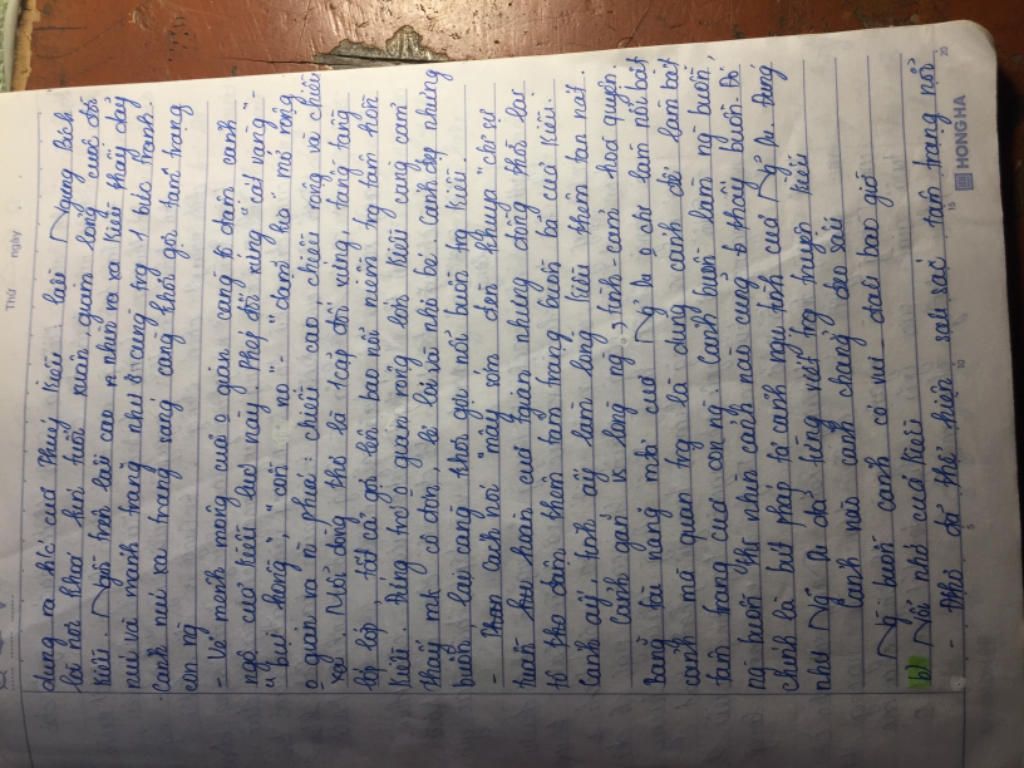 Thứ
ngày
dung ra k/c của Thuý Kiều. Lầu Ngưng Bích
là nơi khoá kín tuổi xuân, giam lỏng cuộc đời
Kiều. Ngồi trên lầu cao n nhìn ra Kiều thấy dãy
núi và mảnh trăng như ở cùng trg 1 bức tranh.
Cảnh núi xa trăng vắng càng khơi gợi tâm trạng
con ng
- Vẻ mênh mông của o gian càng tô đậm cảnh
ngộ của Kiều lúc này. Phép đối xứng " cát vàng " -
" bụi hồng ", " cồn nọ " - " dặm kia " mở rộng
o gian ra 2 phía : chiều cao chiều rộng và chiều
xa. Mỗi dòng thơ là 1 cặp đối xứng, tầng tầng
lớp lớp, tất cả gợi lên bao nỗi niềm trg tâm hồn
Kiều. Đứng trc o gian rộng lớn Kiều càng cảm
thấy mk cô đơn, lẻ loi và nhỏ bé. Cảnh đẹp nhưng
buồn, lại càng khơi gợi nỗi buồn trg Kiều.
- Cách nói " mây sớm đèn khuya " chỉ sự
tuần hoàn của tgian nhưng đồng thời lại
tô đậm thêm tâm trạng buồn bã của Kiều.
Cảnh ấy, tình ấy làm lòng Kiều thêm tan nát.
Cảnh gắn vs lòng ng → tình - cảnh hoà quyện
Bằng tài năng mk của Ng Du o chỉ làm nổi bật
cảnh mà quan trg là dùng cảnh để làm bật
tâm trạng của con ng. Cảnh buồn làm ng buồn,
ng buồn thì nhìn cảnh nào cũng thấy buồn. Đó
chính là bút pháp tả cảnh ngụ tình của Ng Du. Đúng
như Ng Du đã từng viết trg truyện Kiều
Cảnh nào cảnh chẳng đeo sầu
Ng buồn cảnh có vui đâu bao giờ
b) Nỗi nhớ của Kiều
- Thơ đã thể hiện sâu sắc tâm trạng nỗi
5
10
15
20
HONG HA